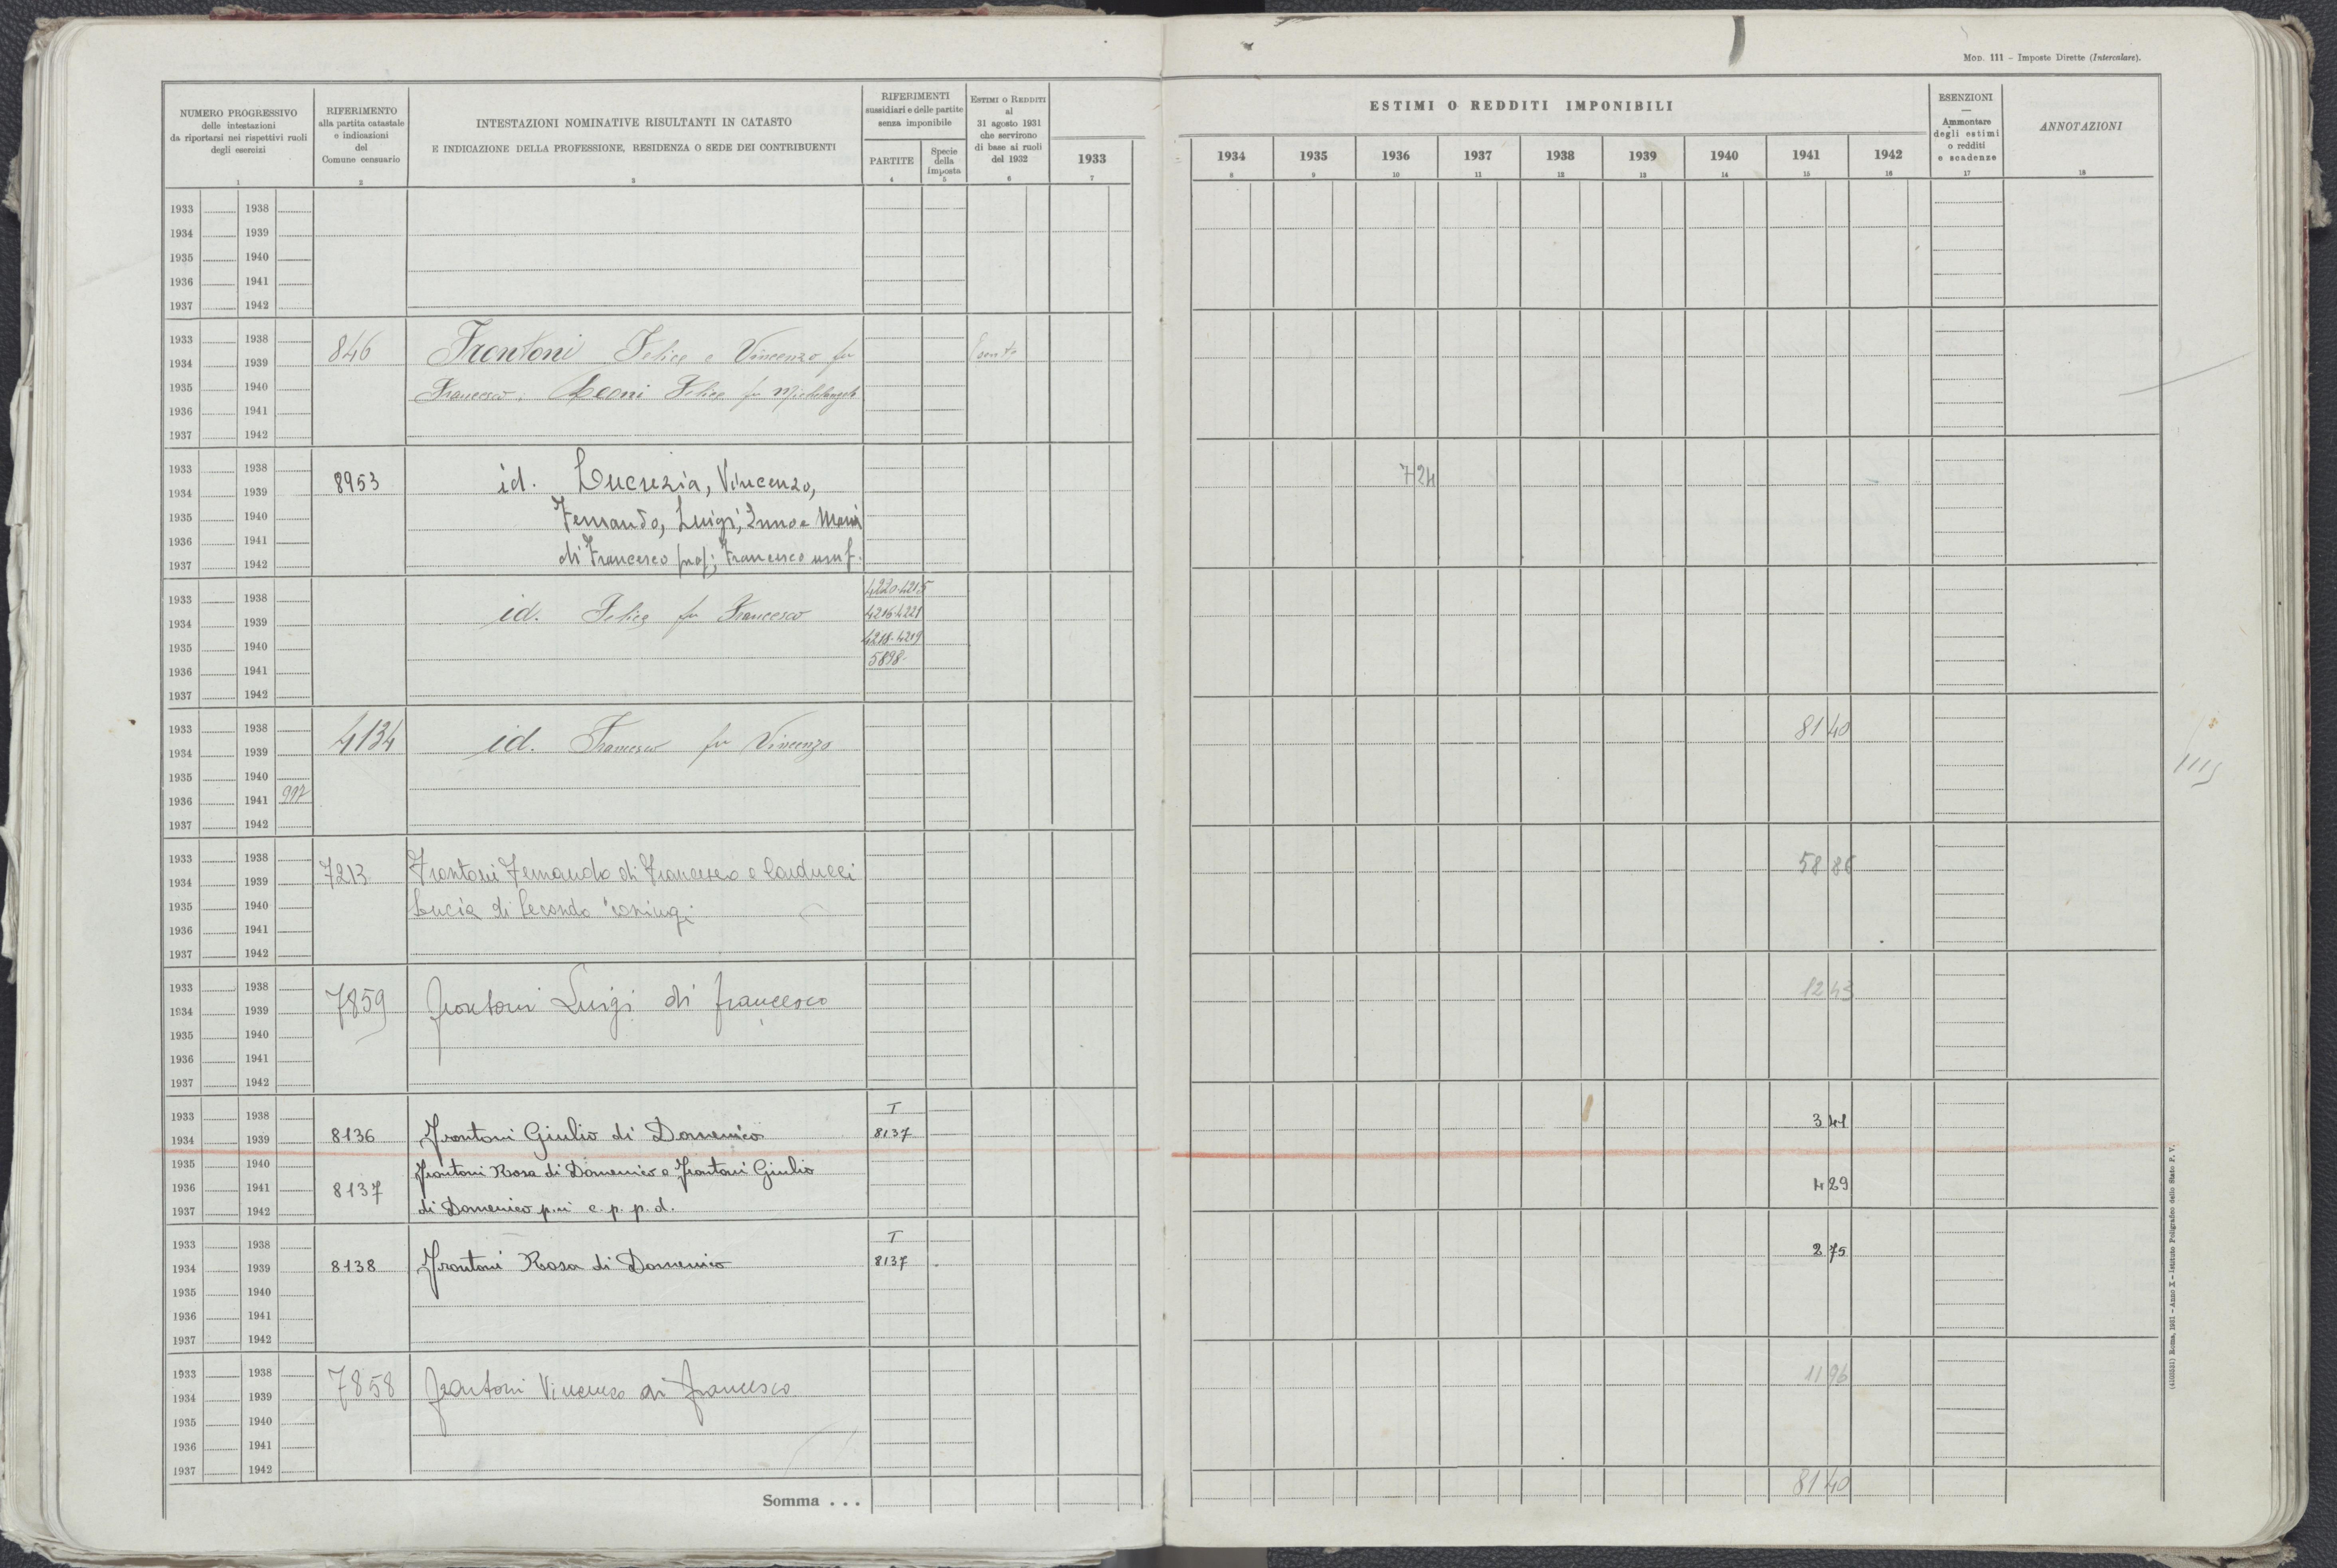 MOD. 111 – Imposte Dirette (Intercalare).
NUMERO PROGRESSIVO
delle intestazioni
da riportarsi nei rispettivi ruoli
degli esercizi
1
RIFERIMENTO
alla partita catastale
e indicazioni
del
Comune censuario
2
INTESTAZIONI NOMINATIVE RISULTANTI IN CATASTO
E INDICAZIONE DELLA PROFESSIONE, RESIDENZA O SEDE DEI CONTRIBUENTI
3
RIFERIMENTI
sussidiari e delle partite
senza imponibile
PARTITE
4
Specie
della
imposta
5
ESTIMI O REDDITI
al
31 agosto 1931
che servirono
di base ai ruoli
del 1932
6
1933
7
ESTIMI O REDDITI IMPONIBILI
1934 1935 1936 1937 1938 1939 1940 1941 1942
8 9 10 11 12 13 14 15 16
ESENZIONI
—
Ammontare
degli estimi
o redditi
e scadenze
17
ANNOTAZIONI
18
1933 1938
1934 1939
1935 1940
1936 1941
1937 1942
1933 1938
1934 1939 846 Frontoni Felice e Vincenzo fu Esente
1935 1940 Francesco; Leoni Felice fu Michelangelo
1936 1941
1937 1942
1933 1938
1934 1939 8953 id. Lucrezia, Vincenzo, 7 24
1935 1940 Fernando, Luigi, Inno e Maria
1936 1941
1937 1942 di Francesco prop; Francesco usuf.
1933 1938 4220-4215
1934 1939 id. Felice fu Francesco 4216-4221
1935 1940 4218-4219
1936 1941 5898-
1937 1942
1933 1938 81 40
1934 1939 4134 id. Francesco fu Vincenzo
1935 1940
1936 1941 997
1937 1942
1933 1938
1934 1939 7213 Frontoni Fernando di Francesco e Carducci 58 86
1935 1940 Lucia di Secondo coniugi
1936 1941
1937 1942
1933 1938
1934 1939 7859 Frontoni Luigi di Francesco 12 43
1935 1940
1936 1941
1937 1942
1933 1938 T
1934 1939 8136 Frontoni Giulio di Domenico 8137 3 41
1935 1940 Frontoni Rosa di Domenico e Frontoni Giulio
1936 1941 8137 4 29
1937 1942 di Domenico p.ri e. p. p. d.
1933 1938 T
1934 1939 8138 Frontoni Rosa di Domenico 8137 2 75
1935 1940
1936 1941
1937 1942
1933 1938
1934 1939 7858 Frontoni Vincenzo di Francesco 11 96
1935 1940
1936 1941
1937 1942
Somma . . . 81 40
(4102031) Roma, 1931 – Anno X – Istituto Poligrafico dello Stato P. V.